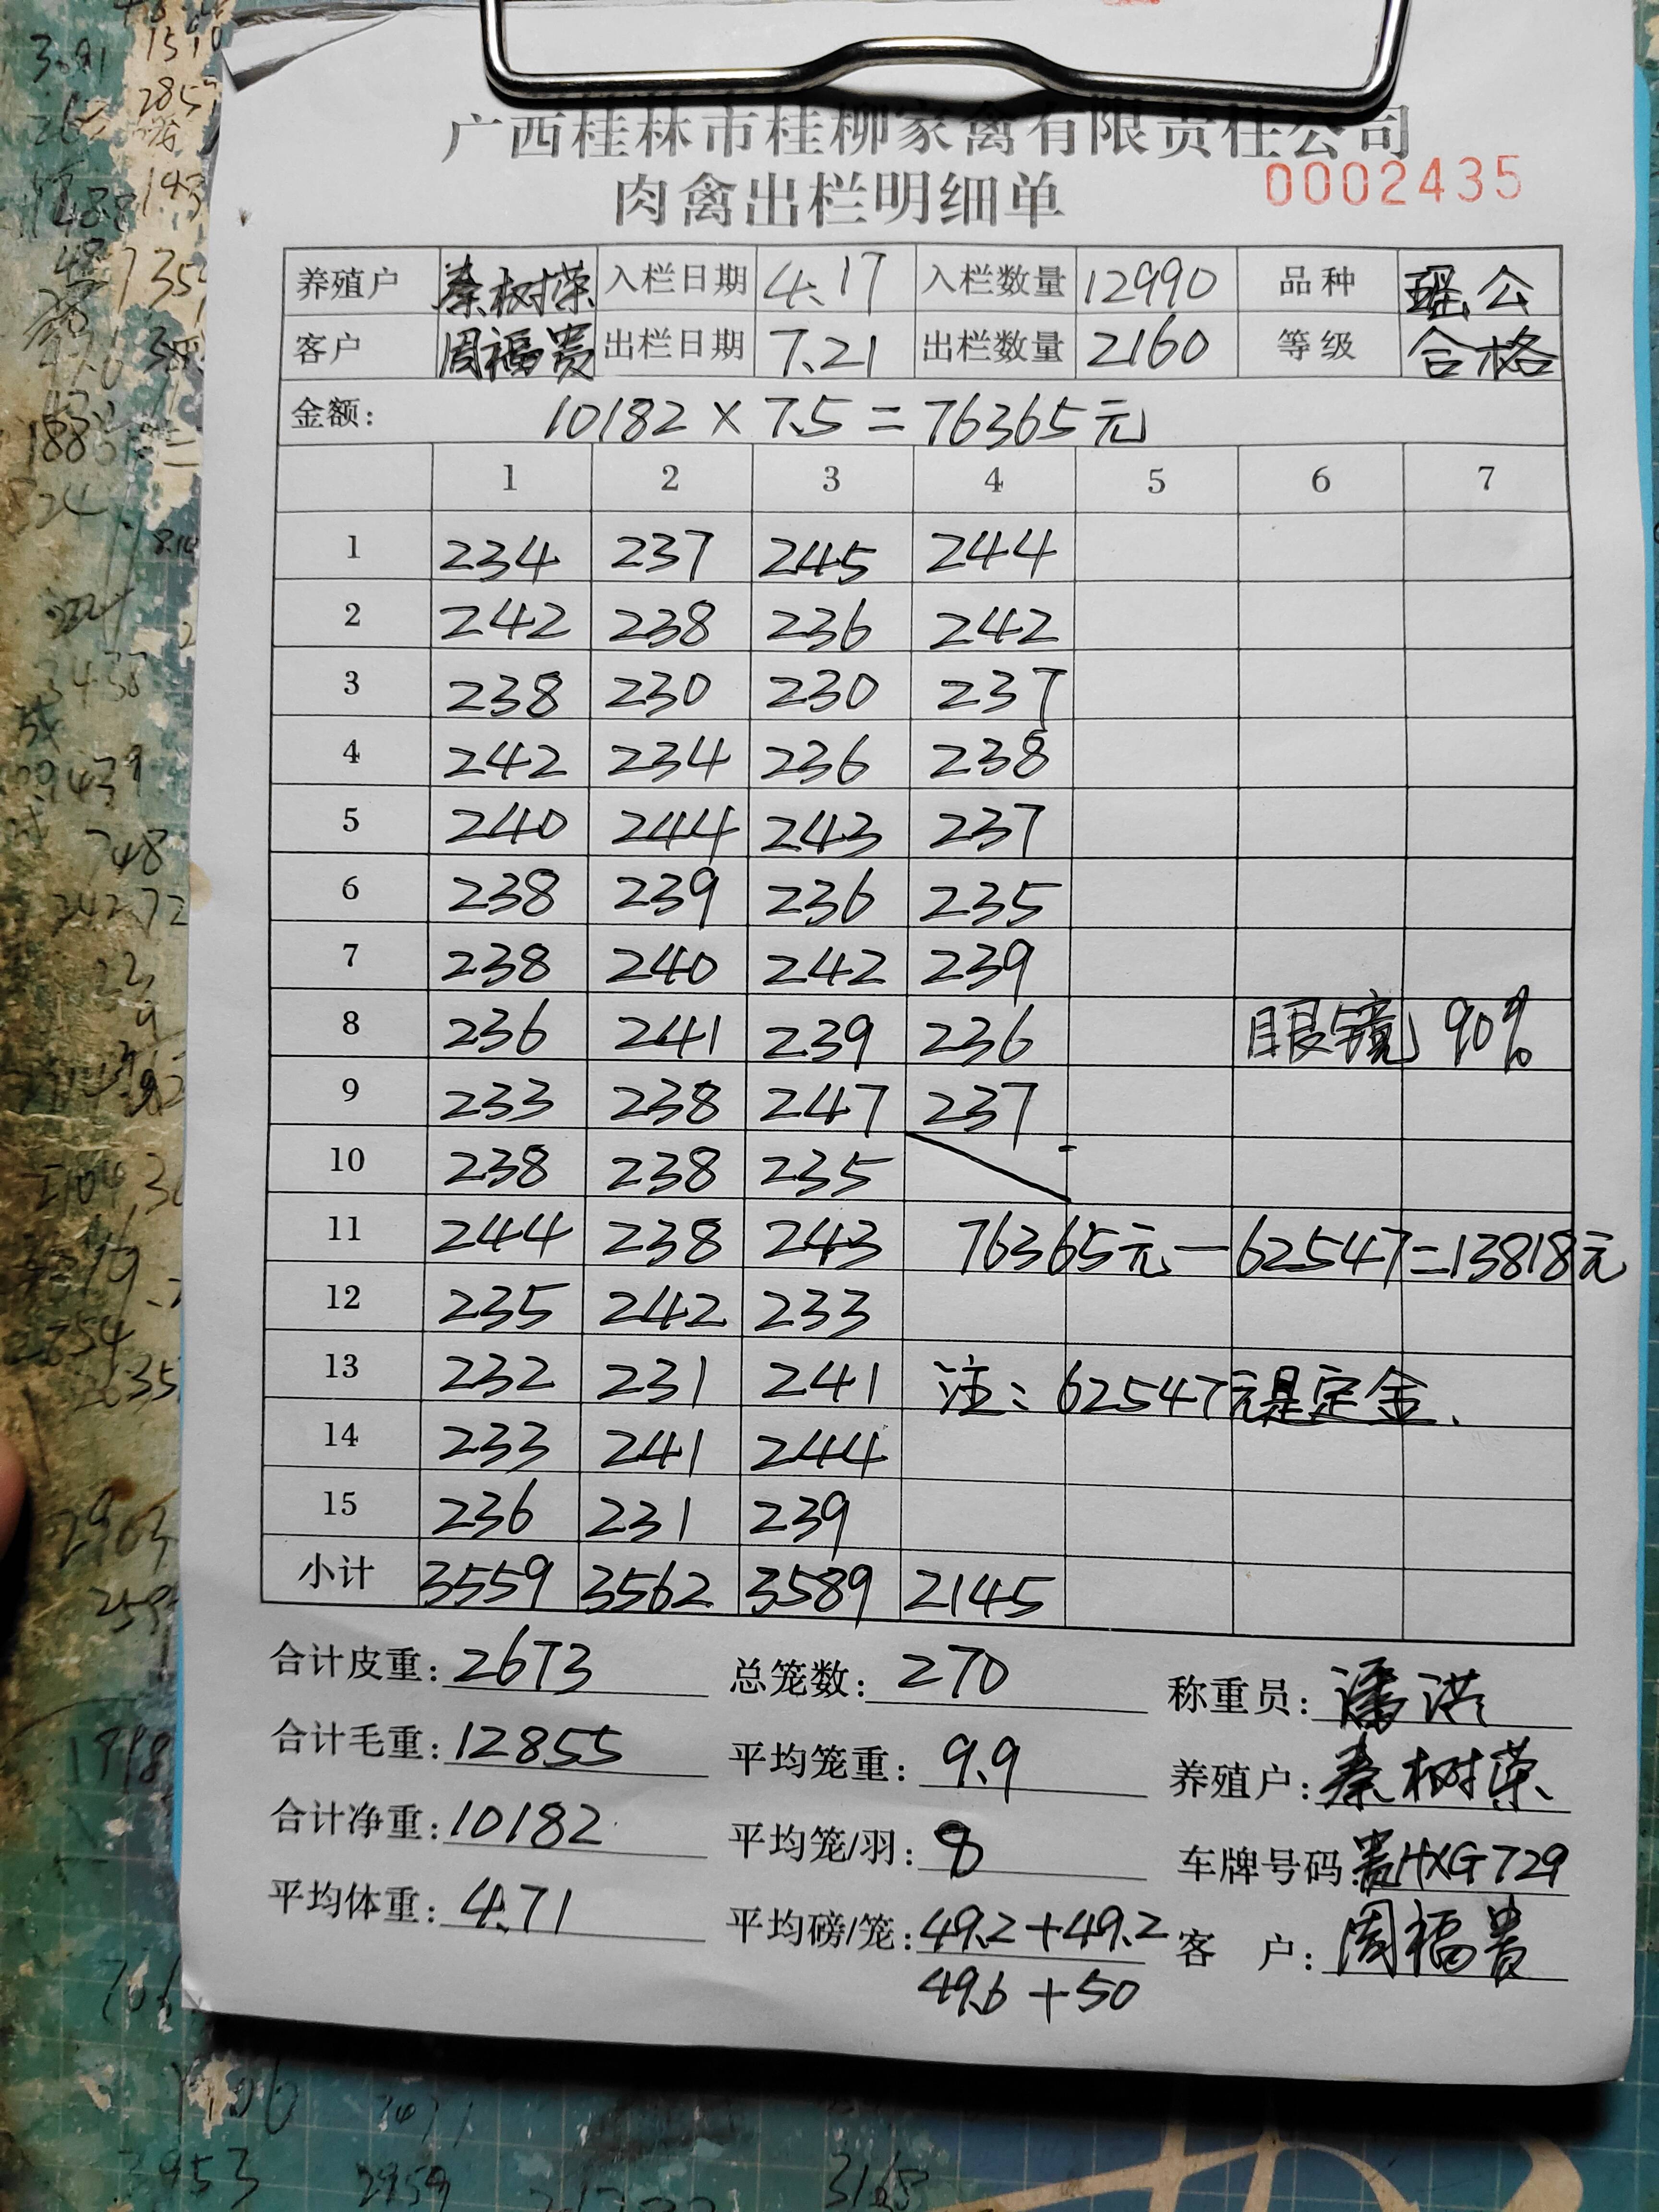 广西桂林市桂柳家禽有限责任公司
肉禽出栏明细单
0002435
养殖户 秦树荣 入栏日期 4.17 入栏数量 12990 品种 瑶公
客户 周福贵 出栏日期 7.21 出栏数量 2160 等级 合格
金额: 10182×7.5=76365元
1 2 3 4 5 6 7
1 234 237 245 244
2 242 238 236 242
3 238 230 230 237
4 242 234 236 238
5 240 244 243 237
6 238 239 236 235
7 238 240 242 239
8 236 241 239 236 眼镜 90%
9 233 238 247 237
10 238 238 235
11 244 238 243 76365元-62547=13818元
12 235 242 233
13 232 231 241 注:62547元是定金.
14 233 241 244
15 236 231 239
小计 3559 3562 3589 2145
合计皮重: 2673 总笼数: 270 称重员: 潘洪
合计毛重: 12855 平均笼重: 9.9 养殖户: 秦树荣
合计净重: 10182 平均笼/羽: 8 车牌号码: 贵HXG729
平均体重: 4.71 平均磅/笼: 49.2+49.2 客 户: 周福贵
49.6+50